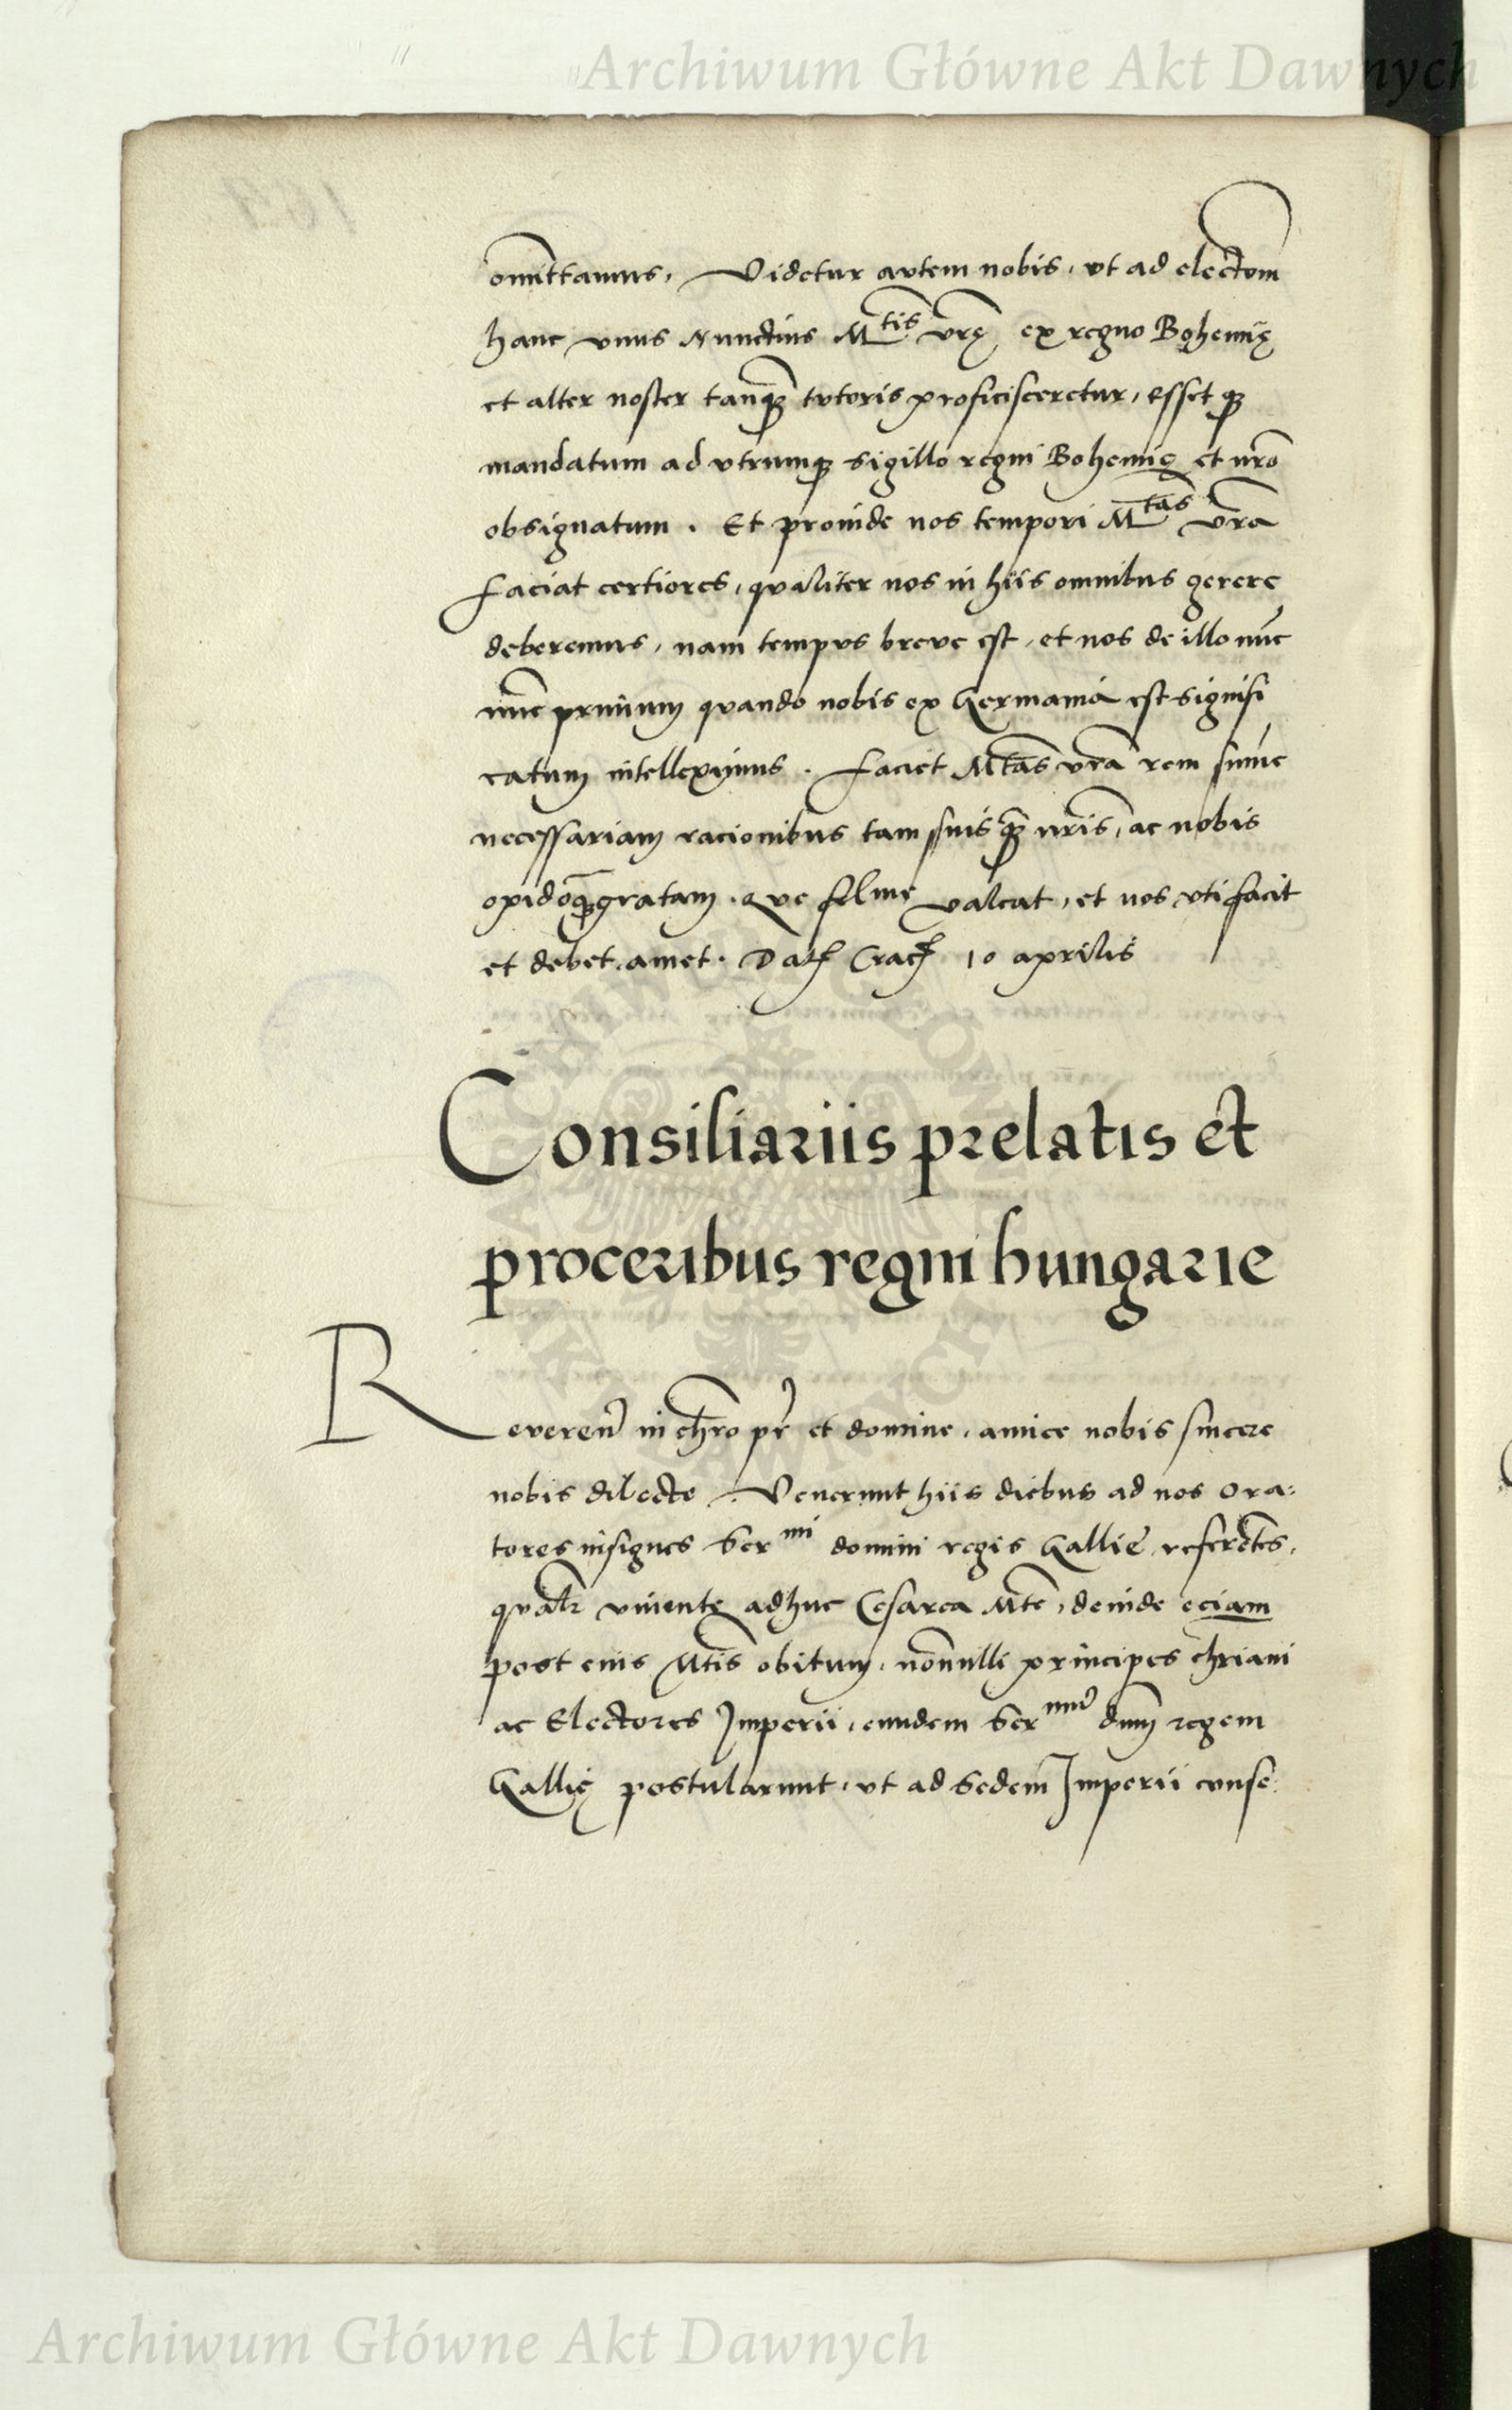 Archiwum Główne Akt Dawnych
omittamus, Videtur autem nobis, vt ad electōem
hanc vnus Nunctius M^tis vrę ex regno Bohemię
et alter noster tanq̃ tutoris proficisceretur, esset q3
mandatum ad vtrumq3 sigillo regni Bohemię et nr̄o
obsignatum. Et proinde nos tempori M^tas vr̄a
faciat certiores, qualiter nos in hiis omnibus gerere
deberemus, nam tempus breve est, et nos de illo
nūc primum quando nobis ex Germania est signifi
catum intelleximus. Faciet Mtas vr̄a rem
necessariam racionibus tam suis q̃ nr̄is, ac nobis
opidoq̃ gratam. Que valeat, et nos vti facit
et debet. amet. Dat Crac 10 aprilis
Consiliariis prelatis et
proceribus regni hungarie
Reveren in chr̄o pr̄ et domine, amice nobis sincere
nobis dilecte. Venerunt hiis diebus ad nos Ora:
tores insignes Ser^mi domini regis Gallie referētes,
qualr̄ viuente adhuc Cesarea Mte, deinde eciam
post eius Mtis obitum, nōnulli principes chr̄iani
ac Electores Imperii, eundem Ser^mū dnm̄ regem
Gallię postularunt, vt ad Sedem Imperii conse:
ARCHIWUM GŁÓWNE AKT DAWNYCH
Archiwum Główne Akt Dawnych